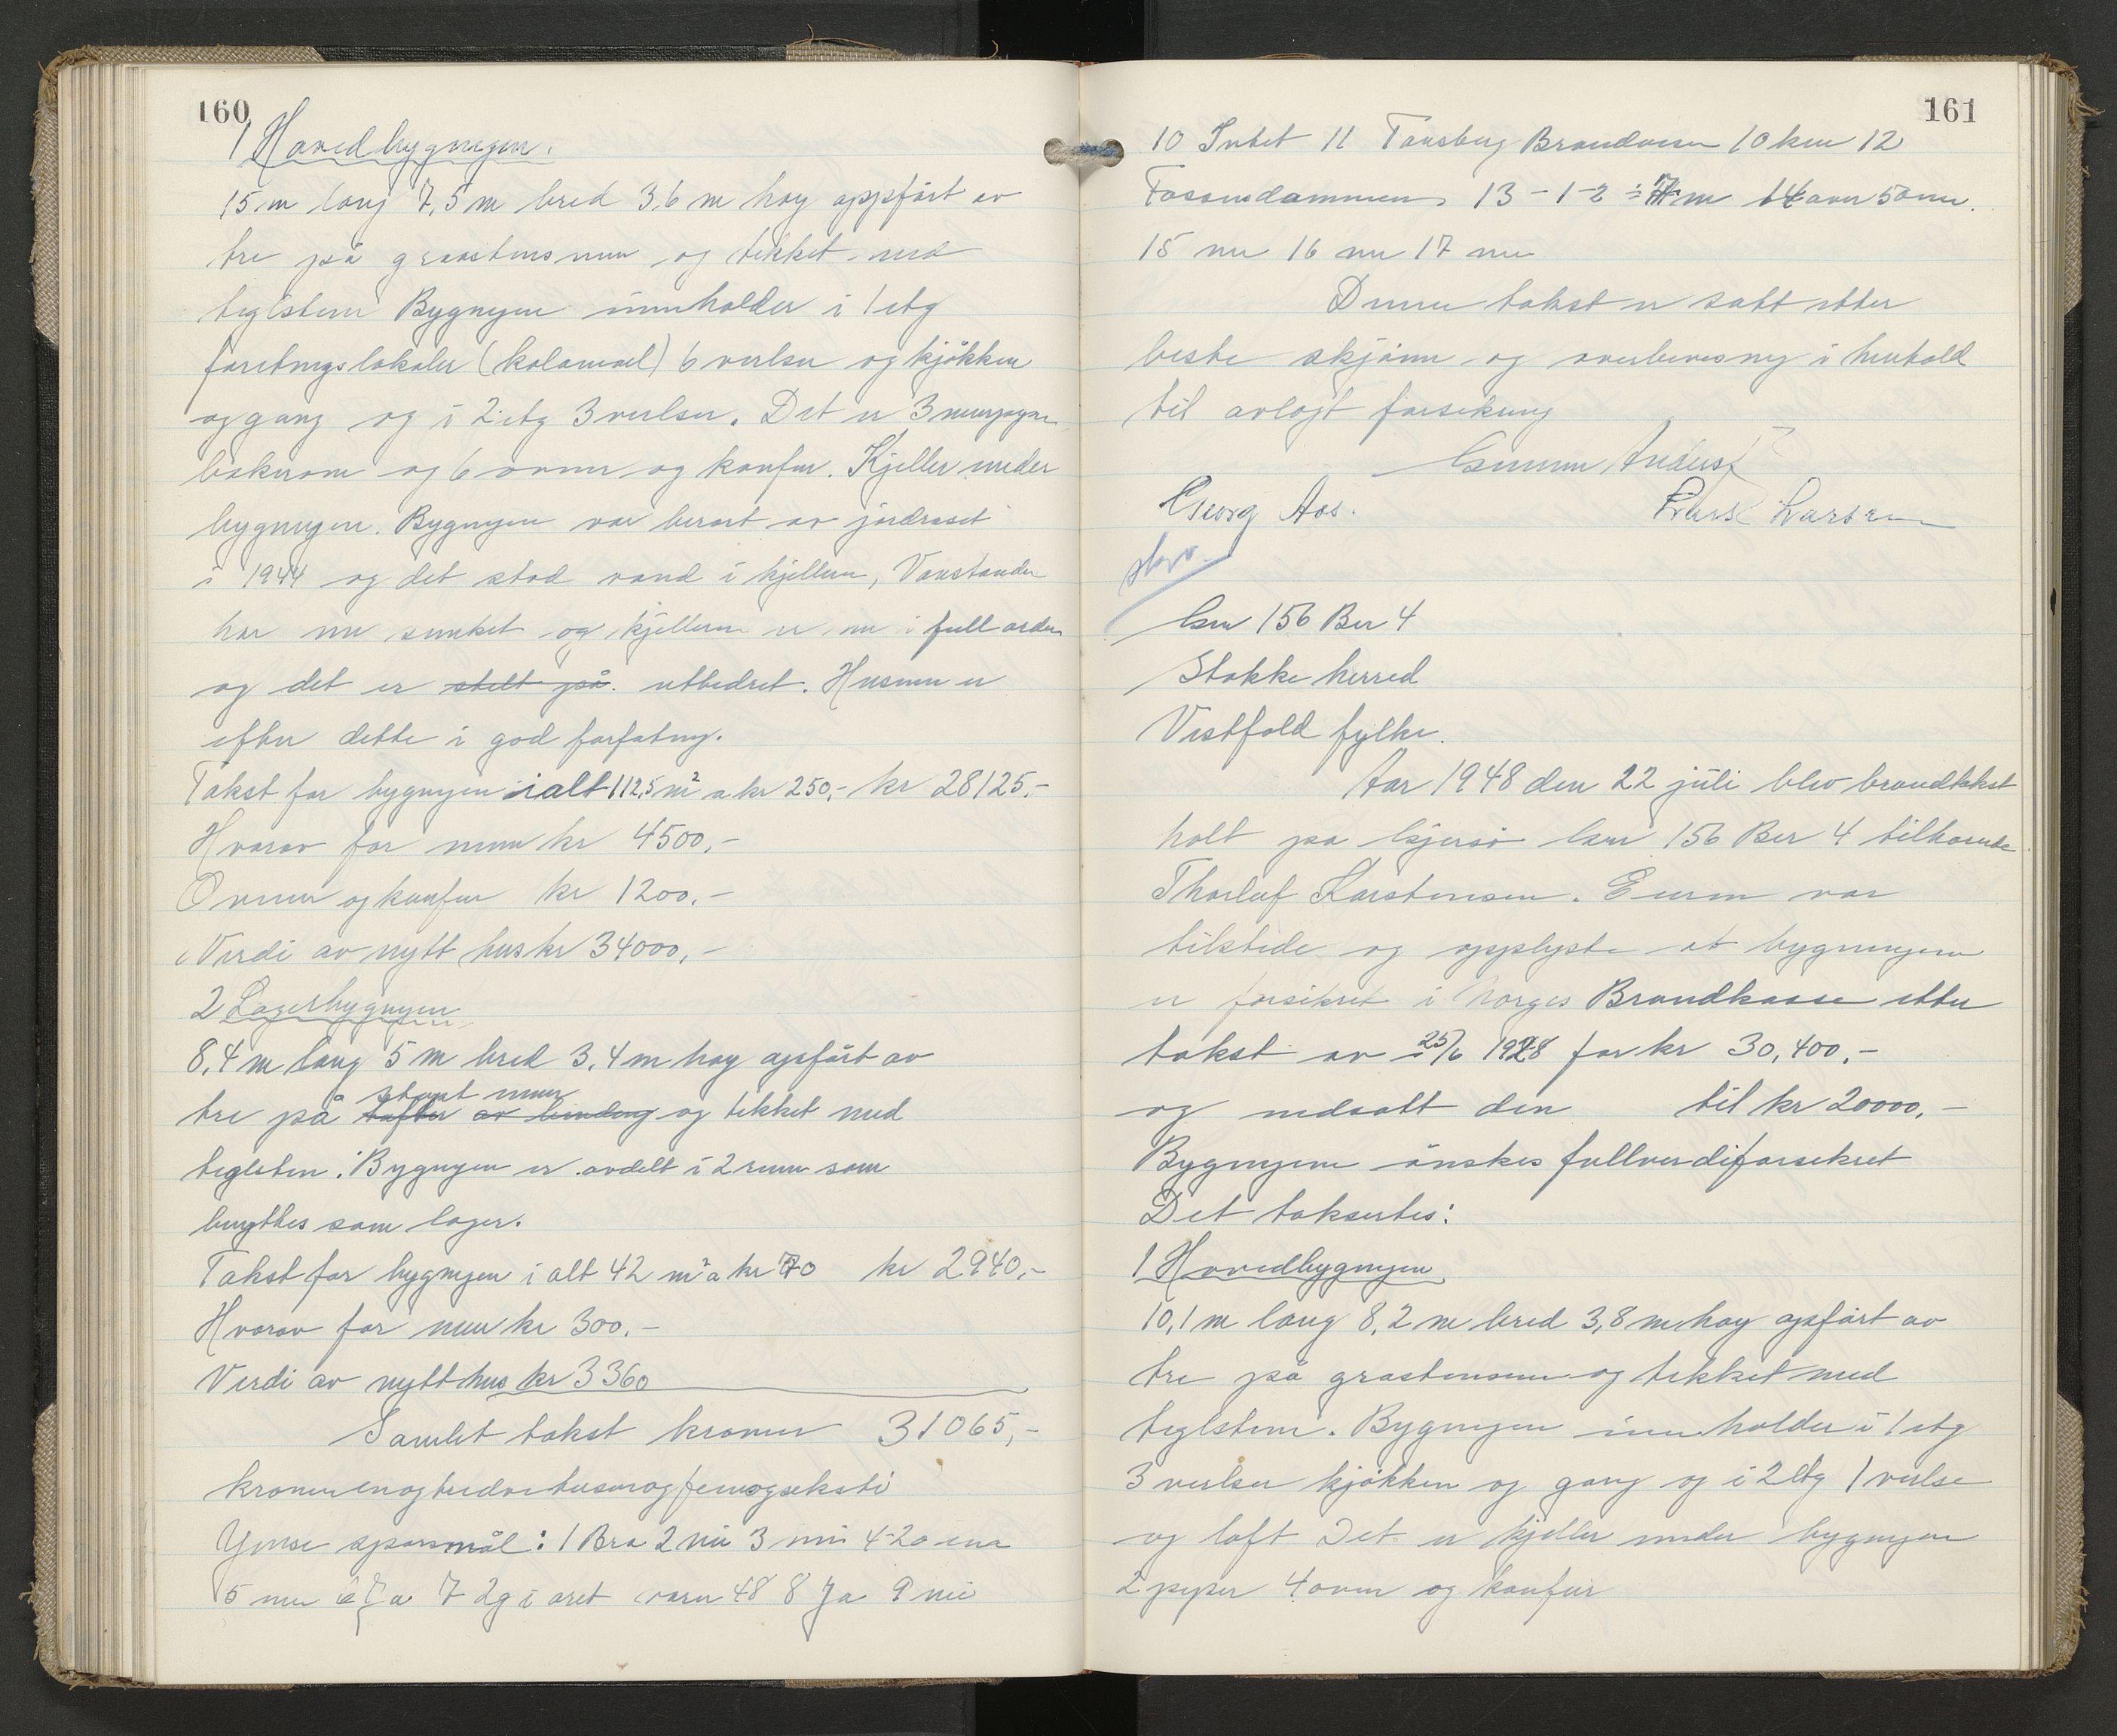 160
1 Hovedbygningen.
15 m lang 7,5 m bred 3,6 m høy oppført av
tre på graastensmur og tekket med
teglsten Bygningen innholder i 1 etg
foretningslokaler (kolonial) 6 verelser og kjøkken
og gang og i 2 etg 3 verelser. Det er 3 murpiper
bakerom og 6 ovner og komfur. Kjeller under
bygningen. Bygningen var berørt av jordraset
i 1944 og det stod vand i kjelleren, Vanstanden
har nu sunket og kjelleren er nu i full orden
og det er stelt på. utbedret. Husene er
efter dette i god forfatning.
Takst for bygningen ialt 112,5 m² a kr 250,- kr 28125,-
Hvorav for mur kr 4500,-
Ovner og komfur kr 1200,-
Verdi av nytt hus kr 34000,-
2 Lagerbygningen
8,4 m lang 5 m bred 3,4 m høy opført av
støpt mur
tre på tufter av og tekket med
teglsten. Bygningen er avdelt i 2 rum som
benyttes som lager.
Takst for bygningen i alt 42 m² a kr 70 kr 2940,-
Hvorav for mur kr 300,-
Verdi av nytt hus kr 3360
Samlet takst kroner 31065,-
kroner enogtredvetusenogfemogseksti
Ymse spørsmål: 1 Bra 2 nei 3 nei 4-20
5 nei 6 Ja 7 2 g i året 48 8 Ja 9 nei
161
10 Intet 11 Tønsberg Brandvesen 10 km 12
Fossnedammen, 13 - 1-2 ÷ 7 m 14 over 50 m.
15 nei 16 nei 17 nei
Denne takst er satt etter
beste skjønn og overbevisning i henhold
til avlagt forsikring
Gunnar Anders
Georg Aas. Lars Larsen
Gnr 156 Bnr 4
Stokke herred
Vestfold fylke.
Aar 1948 den 22 juli blev brandtakst
holt på Gjersø Gnr 156 Bnr 4 tilhørende
Thorleif Karstensen. Eieren var
tilstede og opplyste at bygningen
er forsikret i Norges Brandkasse etter
takst av 25/6 1928 for kr 30,400,-
og nedsatt den til kr 20000,-
Bygningene ønskes fullverdiforsikret
Det takseres:
1 Hovedbygningen
10,1 m lang 8,2 m bred 3,8 m høy opført av
tre på grastensmur og tekket med
teglsten. Bygningen innholder i 1 etg
3 verelser kjøkken og gang og i 2 etg 1 verelse
og loft Det er kjeller under bygningen
2 piper 4 ovner og komfur